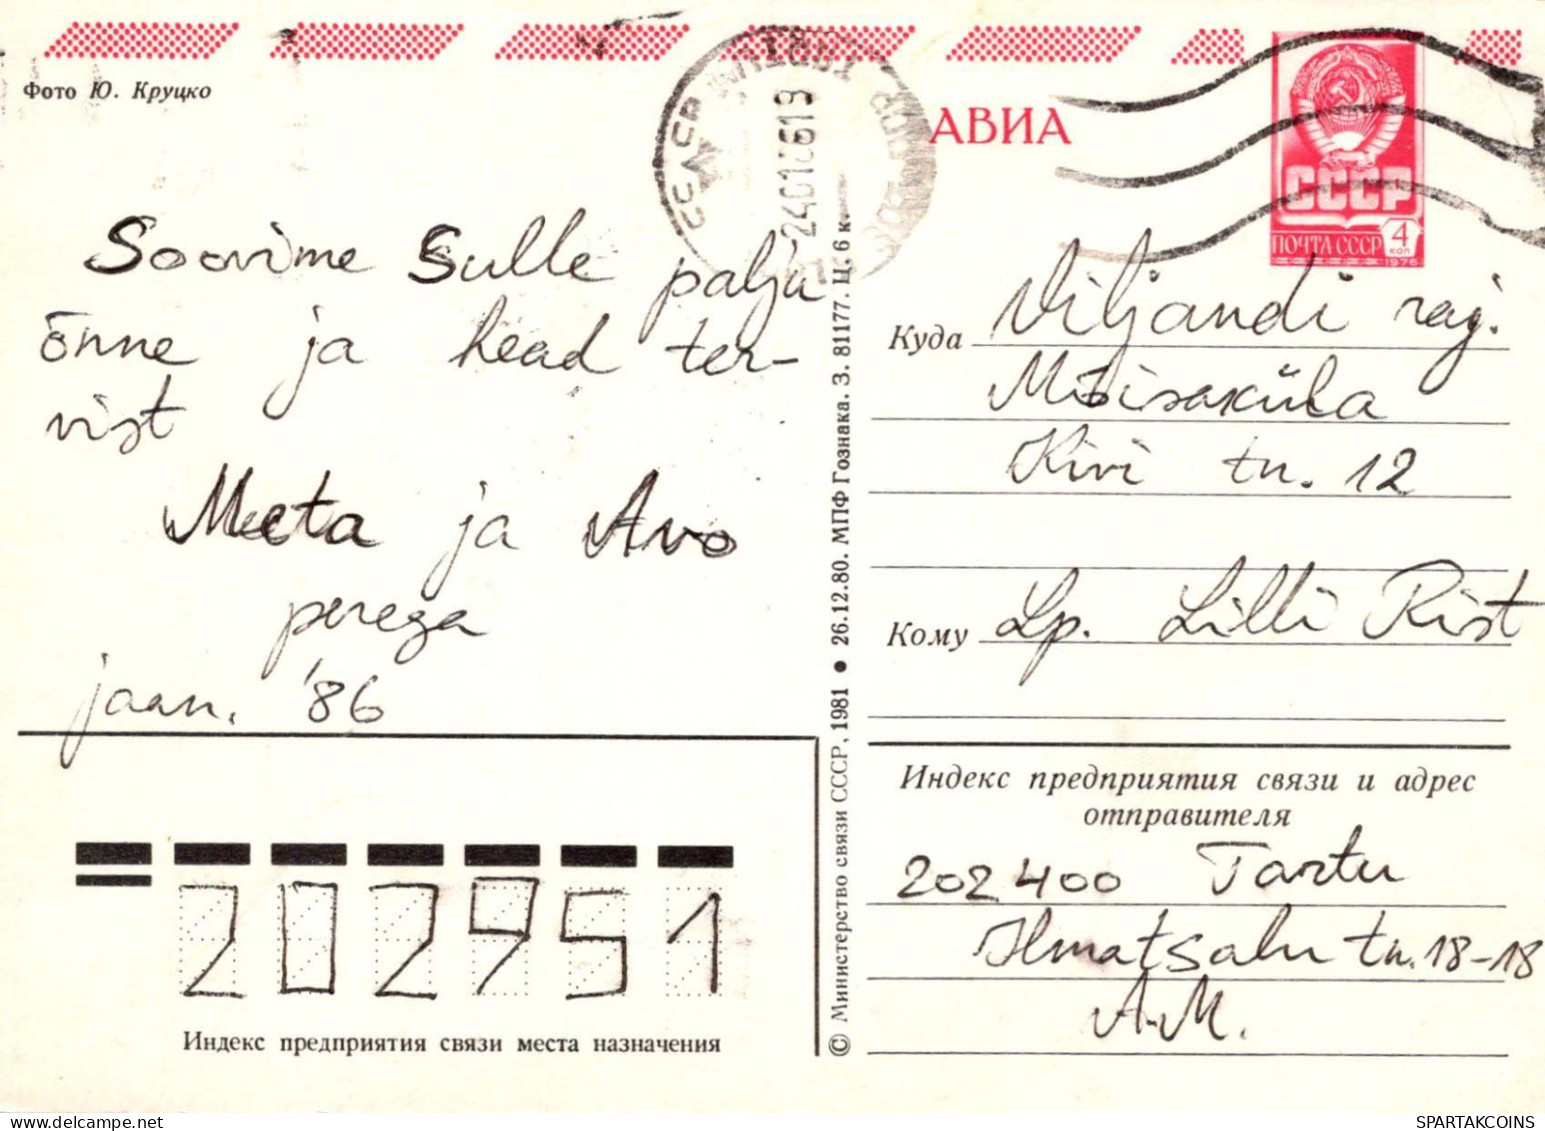 Фото Ю. Круцко
АВИА
СССР
ПОЧТА СССР 4 коп
1976
Soovime Sulle palju
õnne ja head ter-
vist
Meeta ja Avo
perega
jaan. '86
Куда Viljandi raj.
Mõisaküla
Kivi tn. 12
Кому Lp. Lilli Rist
Индекс предприятия связи и адрес
отправителя
202400 Tartu
Ilmatsalu tn. 18-18
A.M.
202951
Индекс предприятия связи места назначения
© Министерство связи СССР, 1981 ● 26.12.80. МПФ Гознака. З. 81177. Ц. 6 к.
SPARTAKCOINS